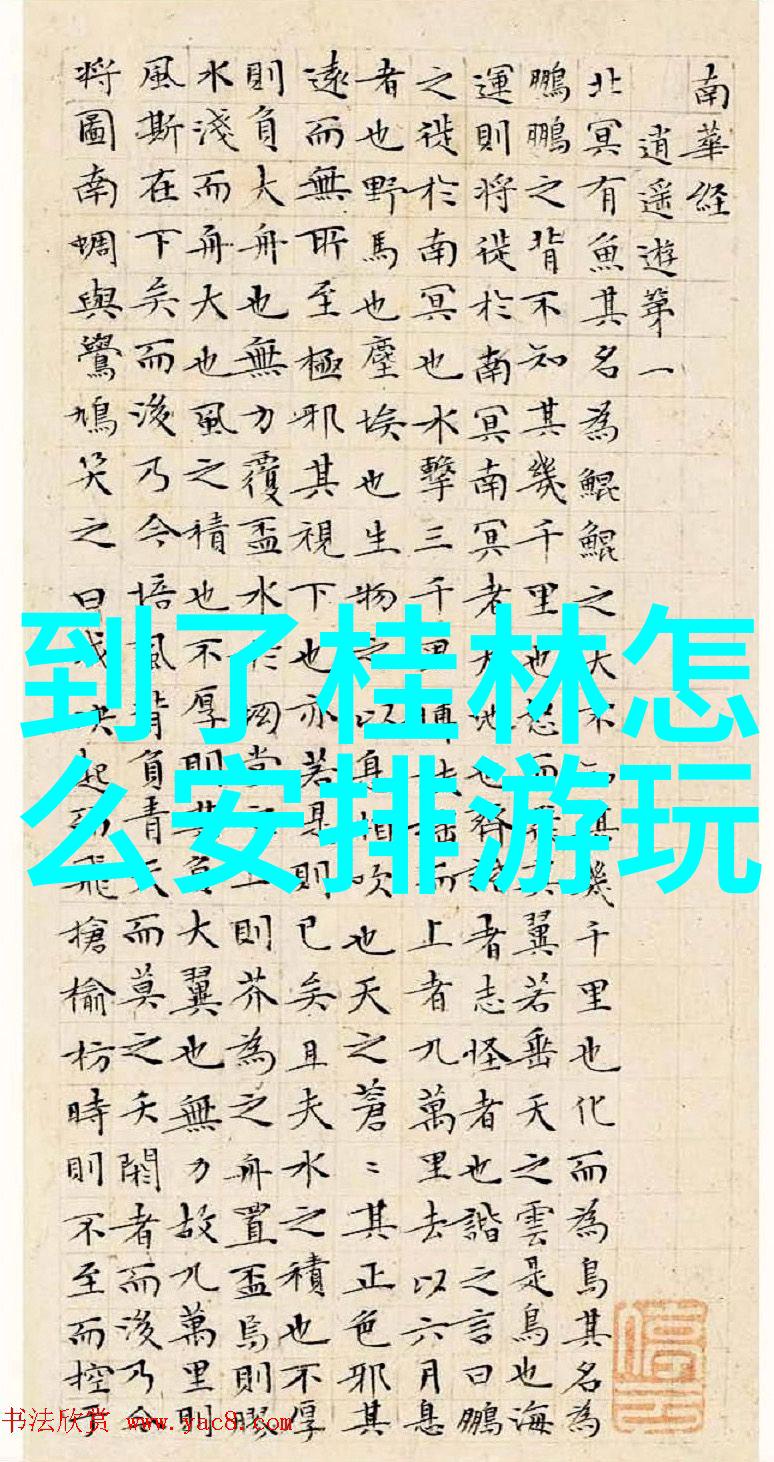 南華経
逍遥遊第一
北冥有魚其名為鯤鯤之大不知其幾千里也化而為鳥其名為
鵬鵬之背不知其幾千里也怒而飛其翼若垂天之雲是鳥也海
運則将徙於南冥南冥者天池也齊諧者志怪者也諧之言曰鵬
之徙於南冥也水擊三千里摶扶摇而上者九萬里去以六月息
者也野馬也塵埃也生物之以息相吹也天之蒼〻其正色邪其
遠而無所至極邪其視下也亦若是則已矣且夫水之積也不厚
則負大舟也無力覆盃水於坳堂之上則芥為之舟置盃焉則膠
水淺而舟大也風之積也不厚則其負大翼也無力故九萬里則
風斯在下矣而後乃今培風背負青天而莫之夭閼者而後乃今
将圖南蜩與鷽鳩笑之曰我決起而飛槍榆枋時則不至而控於
到了桂林怎
么安排游玩
书法欣赏 www.yac8.com